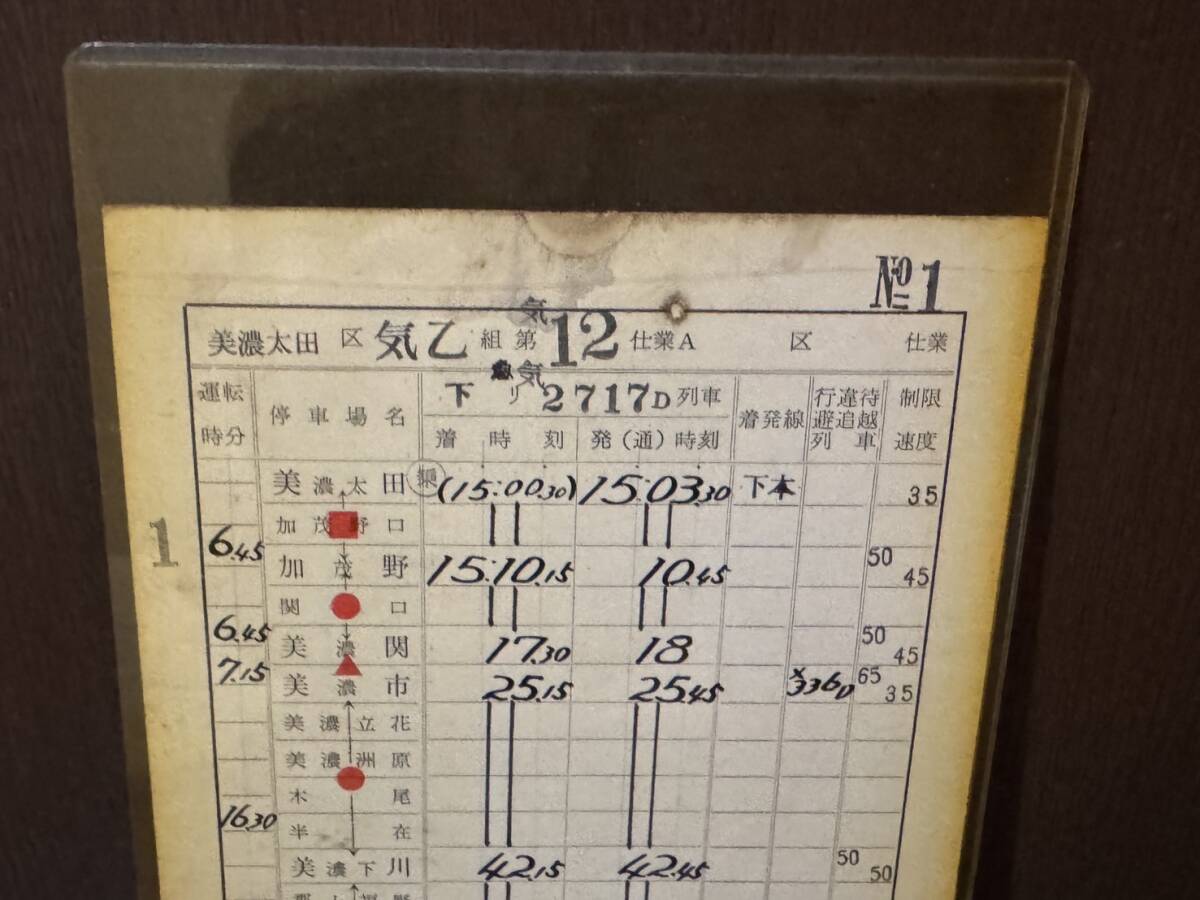 №1
気
美濃太田 区 気乙 組 第 12 仕業A 区 仕業
急気
運転時分 停車場名 下リ 2717D 列車 着発線 行違待避追越列車 制限速度
着時刻 発(通)時刻
美濃太田 (15:00.30) 15:03.30 下本 35
加茂野口
1
6.45 50
加茂野 15:10.15 10.45 45
関口
6.45 50
美濃関 17.30 18 45
7.15 65
美濃市 25.15 25.45 ×336D 35
美濃立花
美濃洲原
木尾
16.30
半在
50
美濃下川 42.15 42.45 50